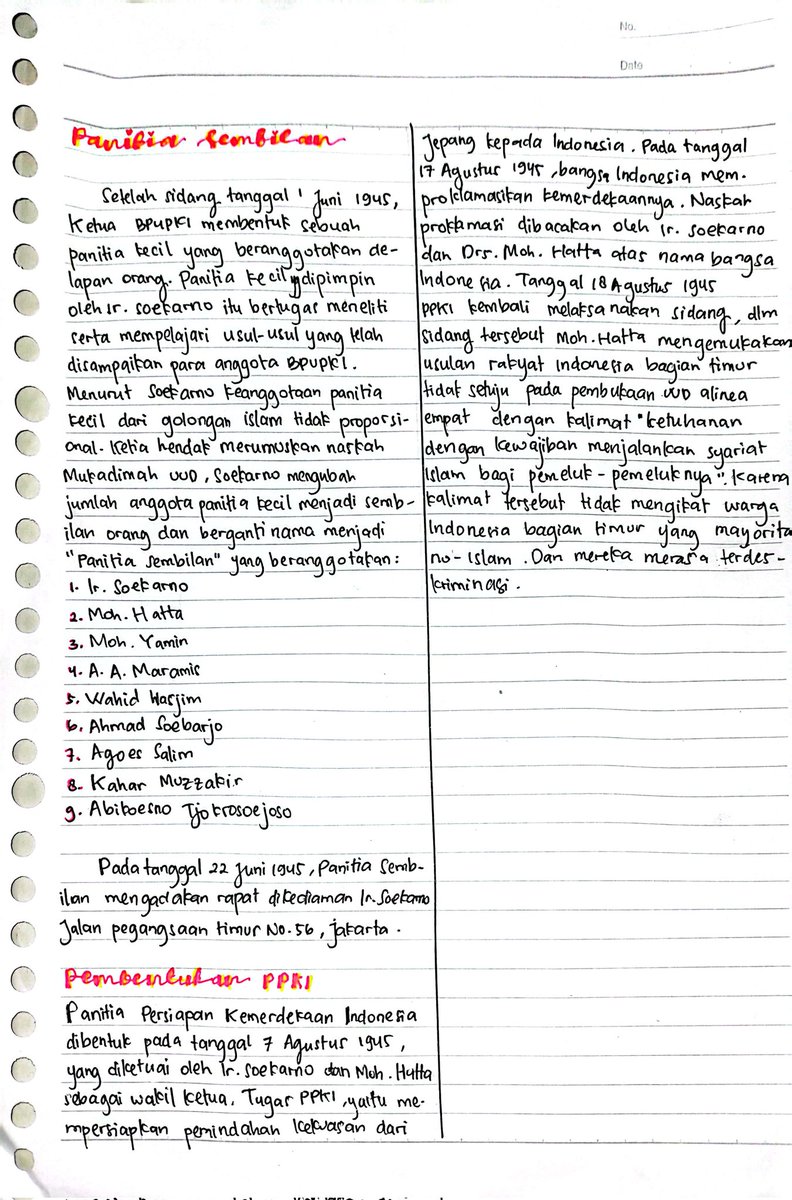 No.
Date
Panitia Sembilan
Setelah sidang tanggal 1 Juni 1945,
Ketua BPUPKI membentuk sebuah
panitia kecil yang beranggotakan de-
lapan orang. Panitia kecil ydipimpin
oleh Ir. Soekarno itu bertugas meneliti
serta mempelajari usul-usul yang telah
disampaikan para anggota BPUPKI.
Menurut Soekarno keanggotaan panitia
kecil dari golongan islam tidak proporsi-
onal. Ketia hendak merumuskan naskah
Mukadimah UUD, Soekarno mengubah
jumlah anggota panitia kecil menjadi semb-
ilan orang dan berganti nama menjadi
"Panitia Sembilan" yang beranggotakan:
1. Ir. Soekarno
2. Moh. Hatta
3. Moh. Yamin
4. A. A. Maramis
5. Wahid Hasjim
6. Ahmad Soebarjo
7. Agoes Salim
8. Kahar Muzzakir
9. Abikoesno Tjokrosoejoso
Pada tanggal 22 Juni 1945, Panitia Semb-
ilan mengadakan rapat dikediaman Ir. Soekarno
Jalan pegangsaan timur No. 56, jakarta.
Pembentukan PPKI
Panitia Persiapan Kemerdekaan Indonesia
dibentuk pada tanggal 7 Agustus 1945,
yang diketuai oleh Ir. Soekarno dan Moh. Hatta
sebagai wakil ketua. Tugas PPKI, yaitu me-
mpersiapkan pemindahan kekuasan dari
Jepang kepada Indonesia. Pada tanggal
17 Agustus 1945, bangsa Indonesia mem-
proklamasikan kemerdekaannya. Naskah
proklamasi dibacakan oleh Ir. Soekarno
dan Drs. Moh. Hatta atas nama bangsa
Indonesia. Tanggal 18 Agustus 1945
PPKI kembali melaksanakan sidang, dlm
sidang tersebut Moh. Hatta mengemukakan
usulan rakyat Indonesia bagian timur
tidak setuju pada pembukaan UUD alinea
empat dengan kalimat "ketuhanan
dengan kewajiban menjalankan syariat
Islam bagi pemeluk-pemeluknya". Karena
kalimat tersebut tidak mengikat warga
Indonesia bagian timur yang mayorita
no-islam. Dan mereka merasa terdes-
kriminasi.